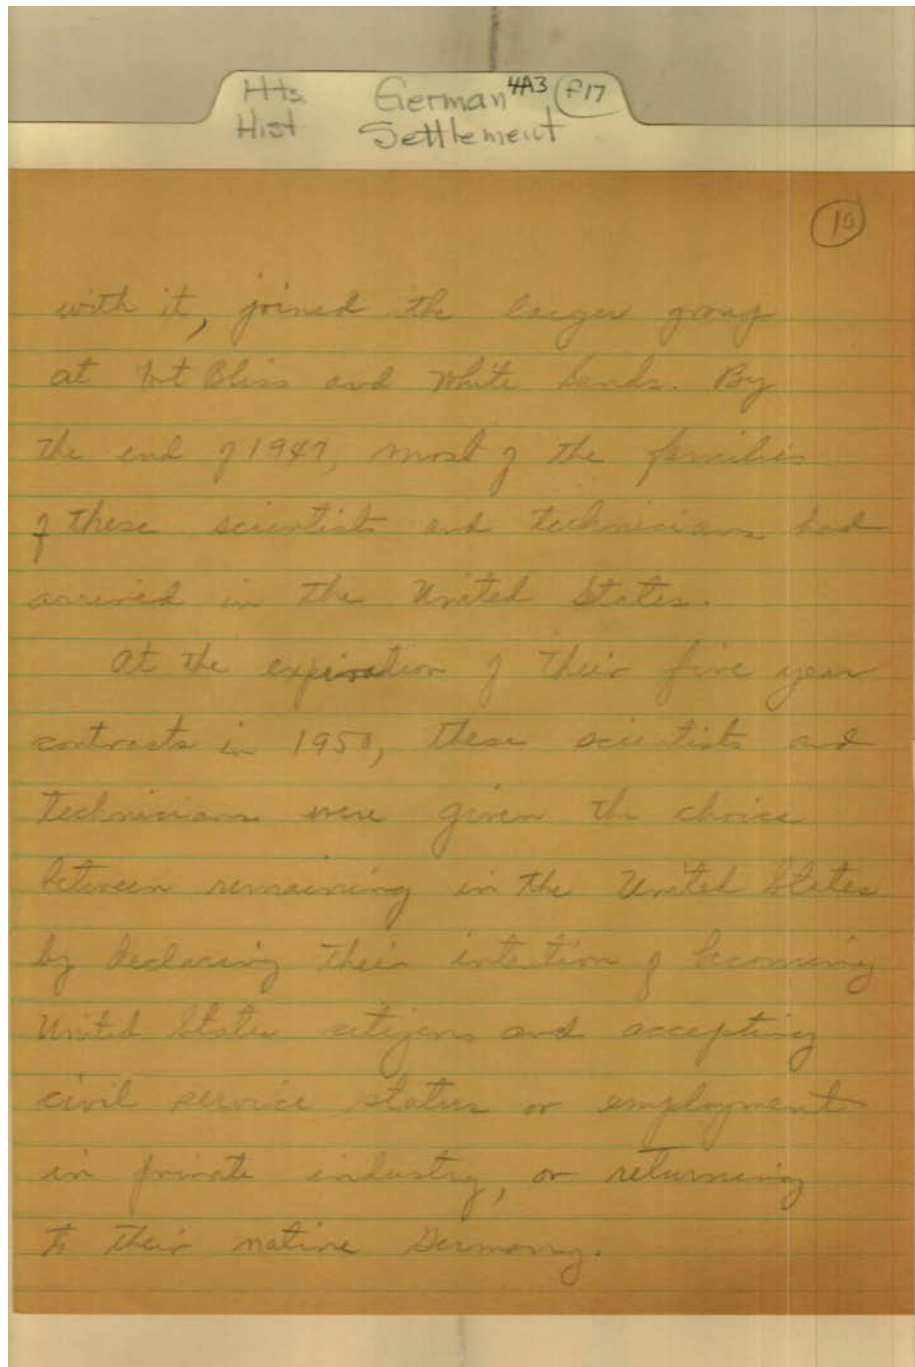 Hts. German 4A3 P17
Hist Settlement
10
with it, joined the larger group
at Ft Bliss and White Sands. By
the end of 1947, most of the families
of these scientists and technicians had
arrived in the United States.
At the expiration of their five year
contracts in 1950, these scientists and
technicians were given the choice
between remaining in the United States
by declaring their intention of becoming
United States citizens and accepting
civil service status or employment
in private industry, or returning
to their native Germany.